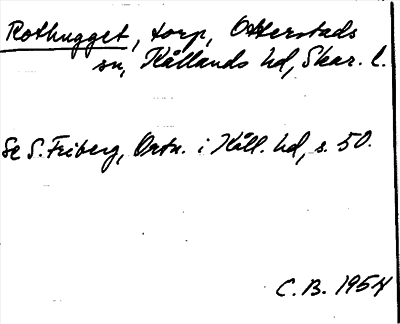 Rothugget, torp, Otterstads
sn, Kållands hd, Skar. l.
Se S. Friberg, Ortn. i Kåll. hd, s. 50.
C. B. 1954